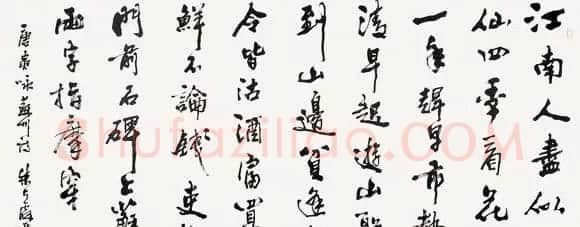 江南人盡似
仙四季看花
一年趕早市都
清早起遊山船
到山邊貧逢
令皆沽酒富買
鮮不論錢吏
門前石碑上蘇
兩字指摩穿
唐寅咏蘇州詩 朱
Shufaziliao.com